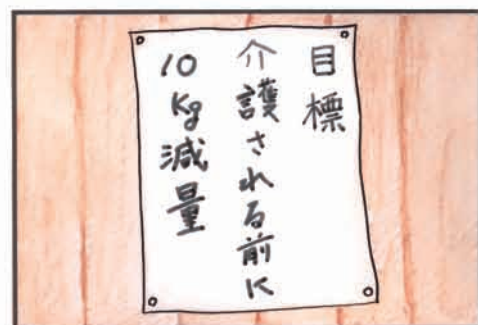 目標
介護される前に
10kg減量